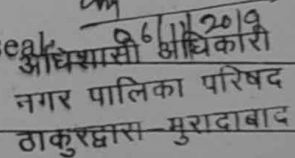 6/11/2019
अधिशासी अधिकारी
नगर पालिका परिषद
ठाकुरद्वारा-मुरादाबाद